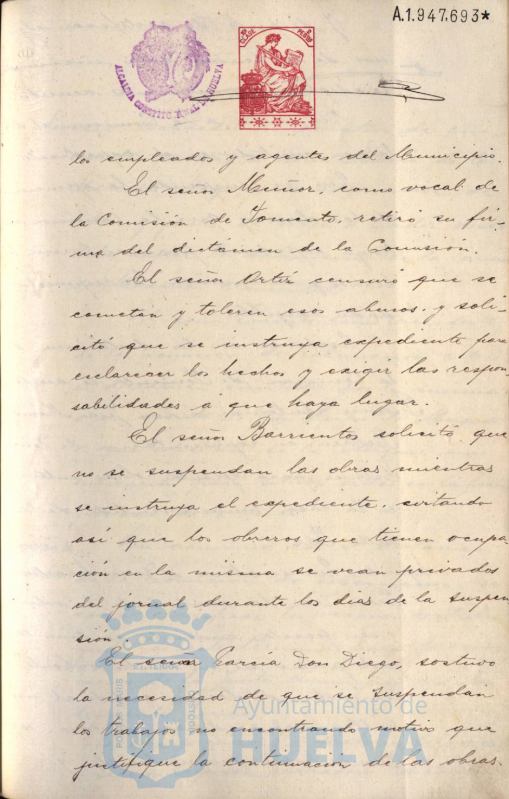 A.1.947.693*
CLASE PESETAS
ALCALDIA CONSTITUCIONAL DE HUELVA
los empleados y agentes del Municipio.
El señor Muñoz, como vocal de
la Comisión de Fomento, retiró su fir-
ma del dictámen de la Comisión.
El señor Ortiz censuró que se
cometan y toleren esos abusos, y soli-
citó que se instruya expediente para
esclarecer los hechos y exigir las respon-
sabilidades á que haya lugar.
El señor Barrientos solicitó, que
no se suspendan las obras mientras
se instruya el expediente, evitando
así que los obreros que tienen ocupa-
ción en la misma se vean privados
del jornal durante los dias de la suspen-
sión.
El señor García Don Diego, sostuvo
la necesidad de que se suspendan
los trabajos no encontrando motivo que
justifique la continuación de las obras.
Ayuntamiento de
HUELVA